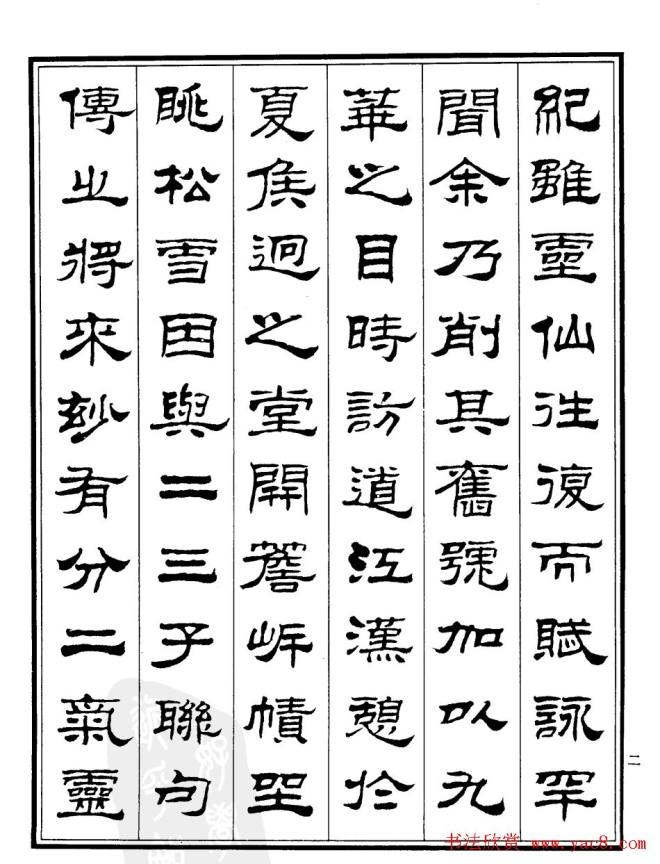 紀雖靈仙往復而賦詠罕
聞余乃削其舊號加以九
華之目時訪道江漢憩於
夏侯迥之堂開簷岸幘坐
眺松雪因與二三子聯句
傳之將來玅有分二氣靈
二
书法欣赏 www.yac8.com